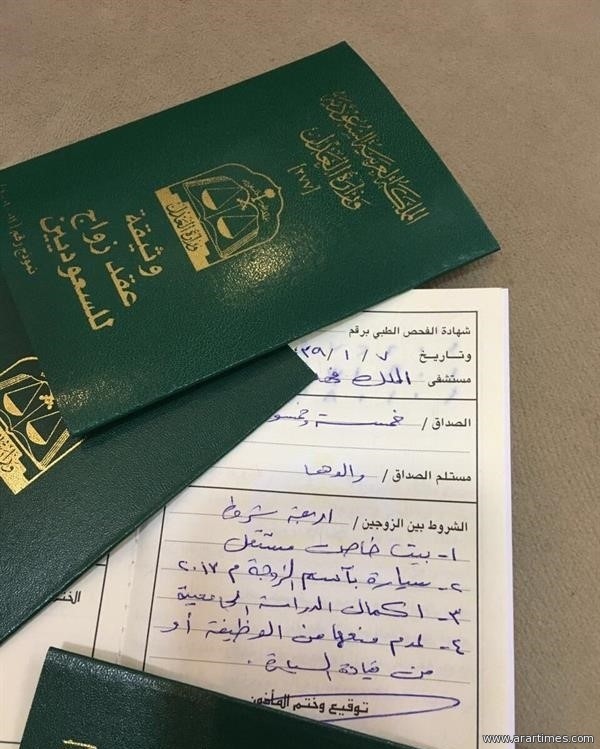 المملكة العربية السعودية
وزارة العدل
[٢٧٧]
وزارة العدل
وثيقة
عقد زواج
للسعوديين
نموذج رقم
شهادة الفحص الطبي برقم
وتاريخ ٧ / ١ / ٣٩
مستشفى الملك
الصداق / خمسة وخمسو
مستلم الصداق / والدها
الشروط بين الزوجين / اربعة شروط
١- بيت خاص مستقل
٢- سيارة بأسم الزوجة م ٢٠١٧
٣- اكمال الدراسة الجامعية
٤- لعدم منعها من الوظيفة أو
من قيادة السيارة.
توقيع وختم المأذون
www.arartimes.com